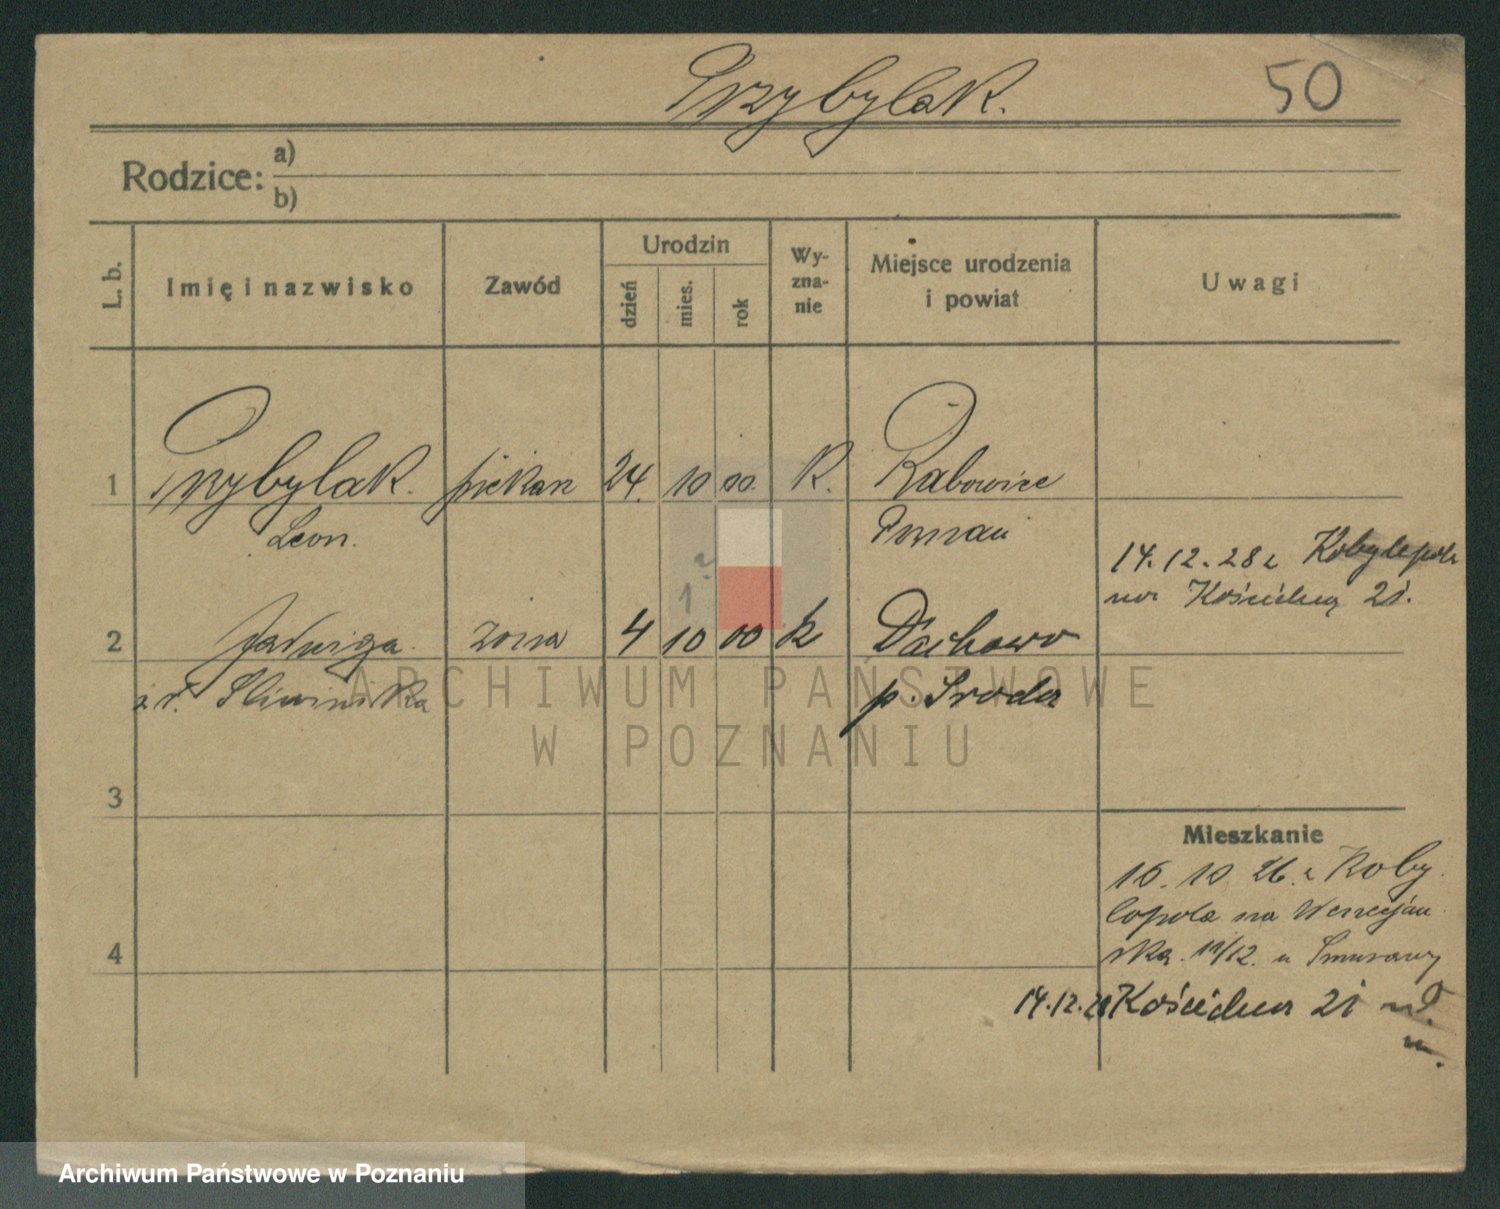 Przybylak.
50
Rodzice: a)
b)
L. b.
Imię i nazwisko
Zawód
Urodzin
dzień
mies.
rok
Wy-
zna-
nie
Miejsce urodzenia
i powiat
Uwagi
1 Przybylak. piekarz 24. 10 00. R. Rabowice
Leon. Poznań
14.12.28 z Kobylepole
na Kościelną 21.
1?
2 Jadwiga żona 4 10 00 k Dachowo
z d. Śliwińska p. Środa
ARCHIWUM PAŃSTWOWE
W POZNANIU
3
Mieszkanie
16. 10 26. z Koby
lopola na Wenecjań
ską. 11/12. u
4
14.12.28 Kościelna 21
Archiwum Państwowe w Poznaniu